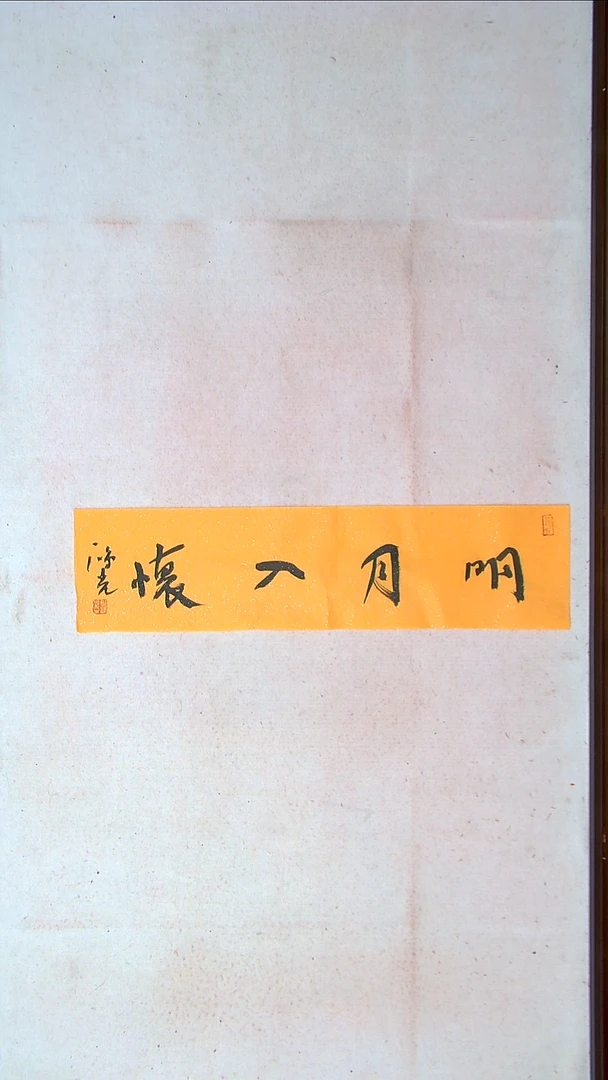 明月入懷